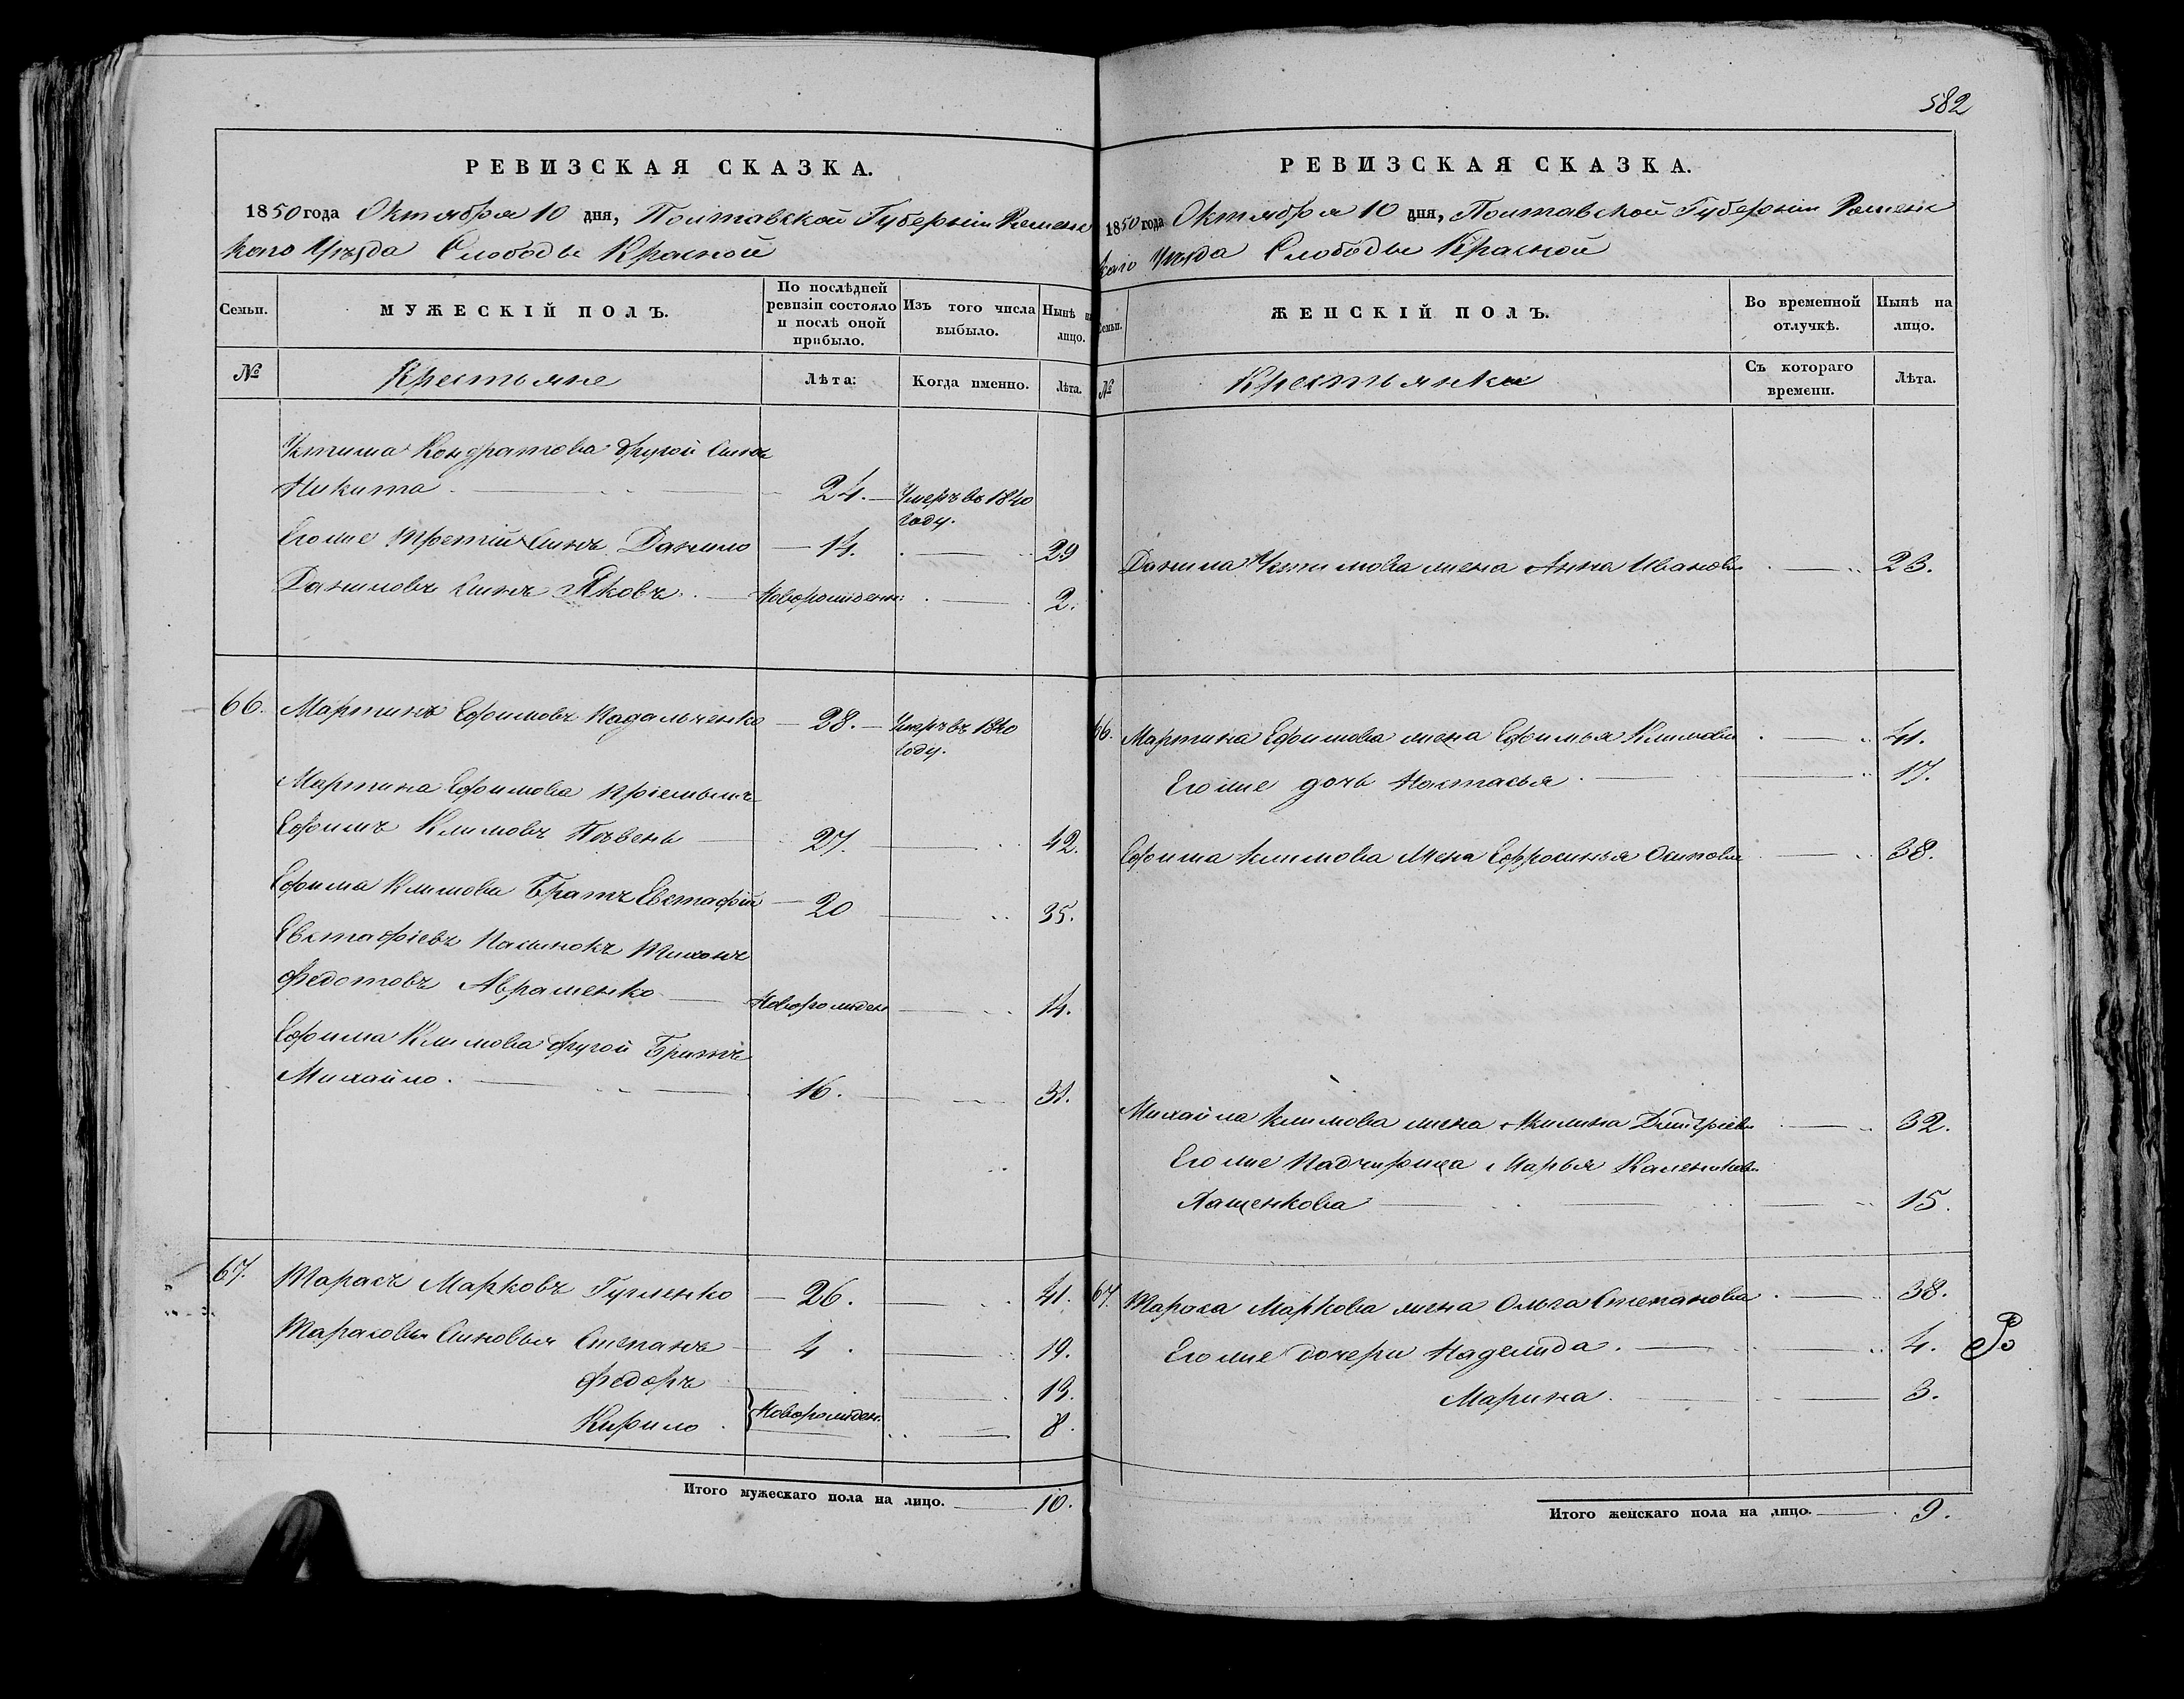 РЕВИЗСКАЯ СКАЗКА.
1850 года Октября 10 дня, Полтавской Губерніи Роменс
каго Уѣзда Слободы Красной
Семьи.
МУЖЕСКІЙ ПОЛЪ.
По послѣдней ревизіи состояло и послѣ оной прибыло.
Изъ того числа выбыло.
Нынѣ на лицо.
№
Крестьяне
Лѣта:
Когда именно.
Лѣта.
Устима Кондратова другой Сынъ
Никита 24. Умеръ въ 1840
году.
Егоже третій Сынъ Данило 14. 29
Даниловъ Сынъ Яковъ. Новорожден: 2.
66. Мартинъ Ефимовъ 28. Умеръ въ 1840
году.
Мартина Ефимова пріемышъ
Ефимъ Климовъ Пивень 27. 42.
Ефима Климова Братъ Евстафій 20 35.
Евстафіевъ Пасынокъ Тихонъ
Федотовъ Авраменко Новорожден 14.
Ефима Климова другой Братъ
Михайло. 16. 31.
67. Тарасъ Марковъ Гугленко 26. 41.
Тарасовы Сыновья Степанъ 4. 19.
Федоръ 13.
Кирило Новорожден. 8.
Итого мужескаго пола на лицо. 10.
582
РЕВИЗСКАЯ СКАЗКА.
1850 года Октября 10 дня, Полтавской Губерніи Роменс
каго Уѣзда Слободы Красной
Семьи.
ЖЕНСКІЙ ПОЛЪ.
Во временной отлучкѣ.
Нынѣ на лицо.
№
Крестьянки
Съ котораго времени.
Лѣта.
Данила Устимова жена Анна Иванова 23.
66. Мартина Ефимова жена Ефимья Климова 41.
Егоже дочь Настасья 17.
Ефима Климова жена Ефросинья Осипова 38.
Михайла Климова жена Акилина Дмитріева 32.
Егоже Падчирица Марья Каленикова
Пащенкова 15.
67. Тараса Маркова жена Ольга Степанова 38.
Егоже дочери Надежда. 4.
Марина. 3.
Итого женскаго пола на лицо. 9.